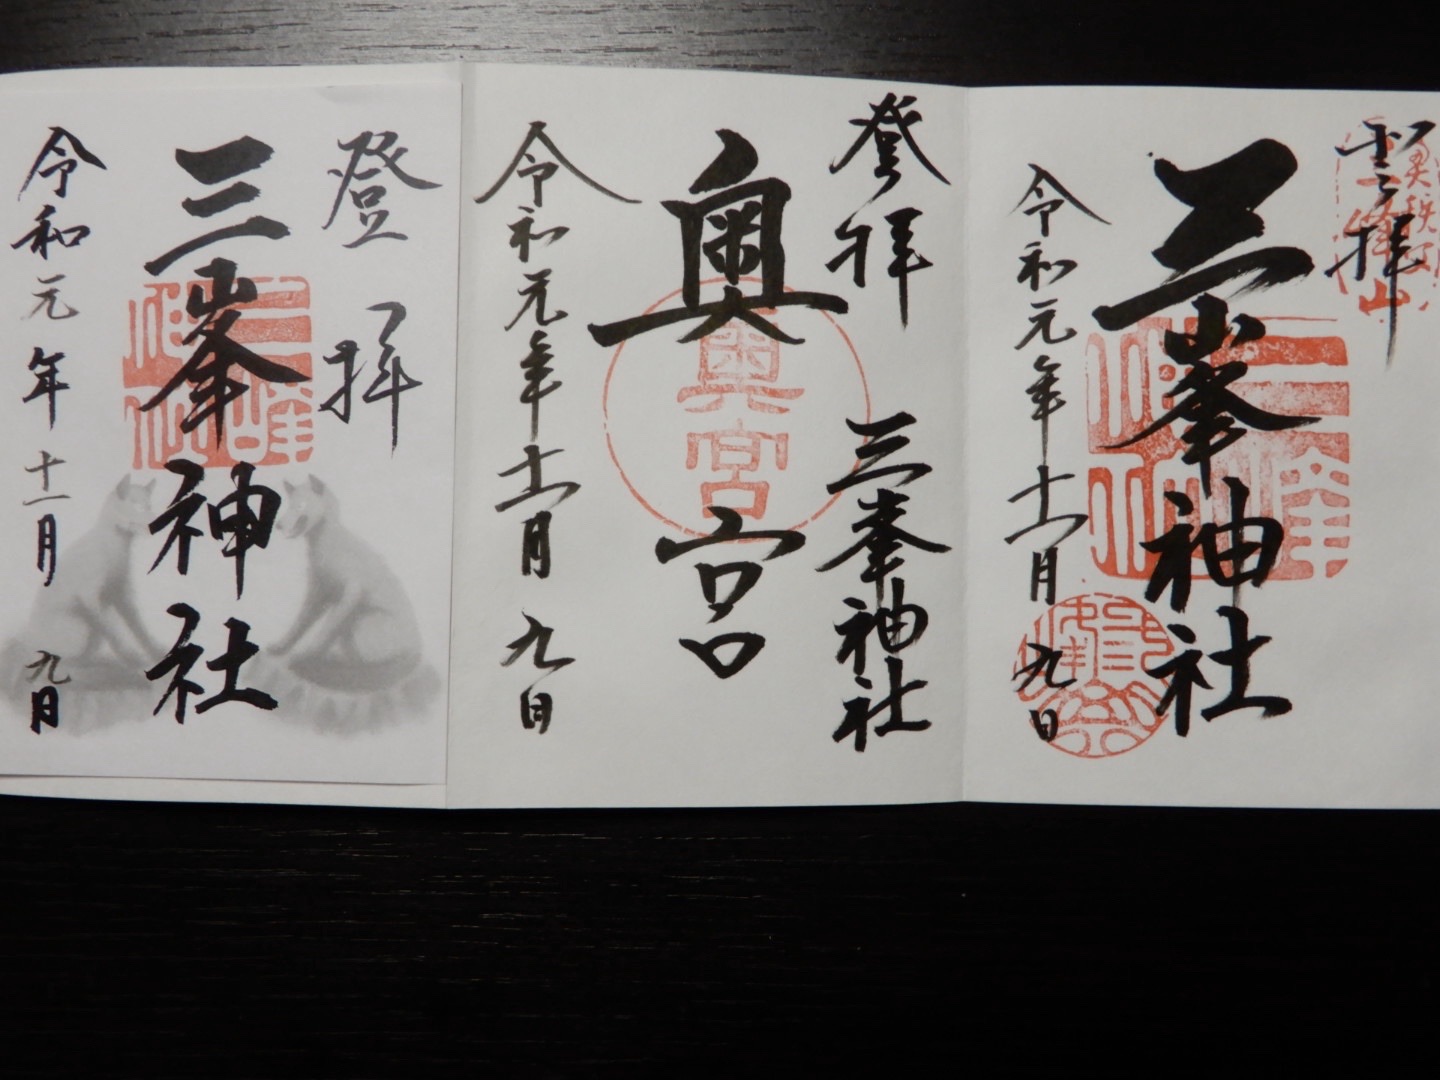 登拝
三峯神社
令和元年十一月九日
奥宮
登拝
三峯神社
奥宮
令和元年十一月九日
登拝
三峯神社
令和元年十一月九日